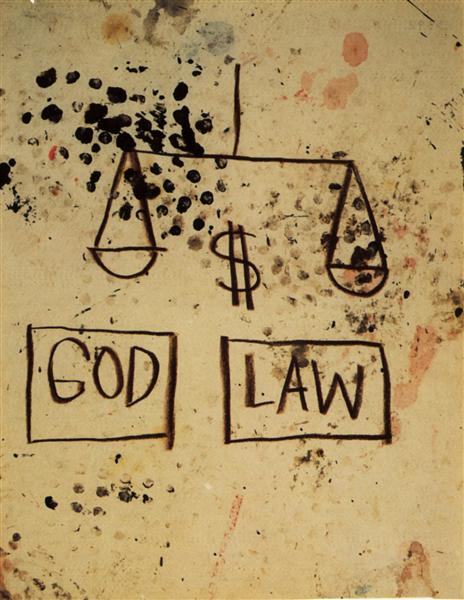 $
GOD LAW